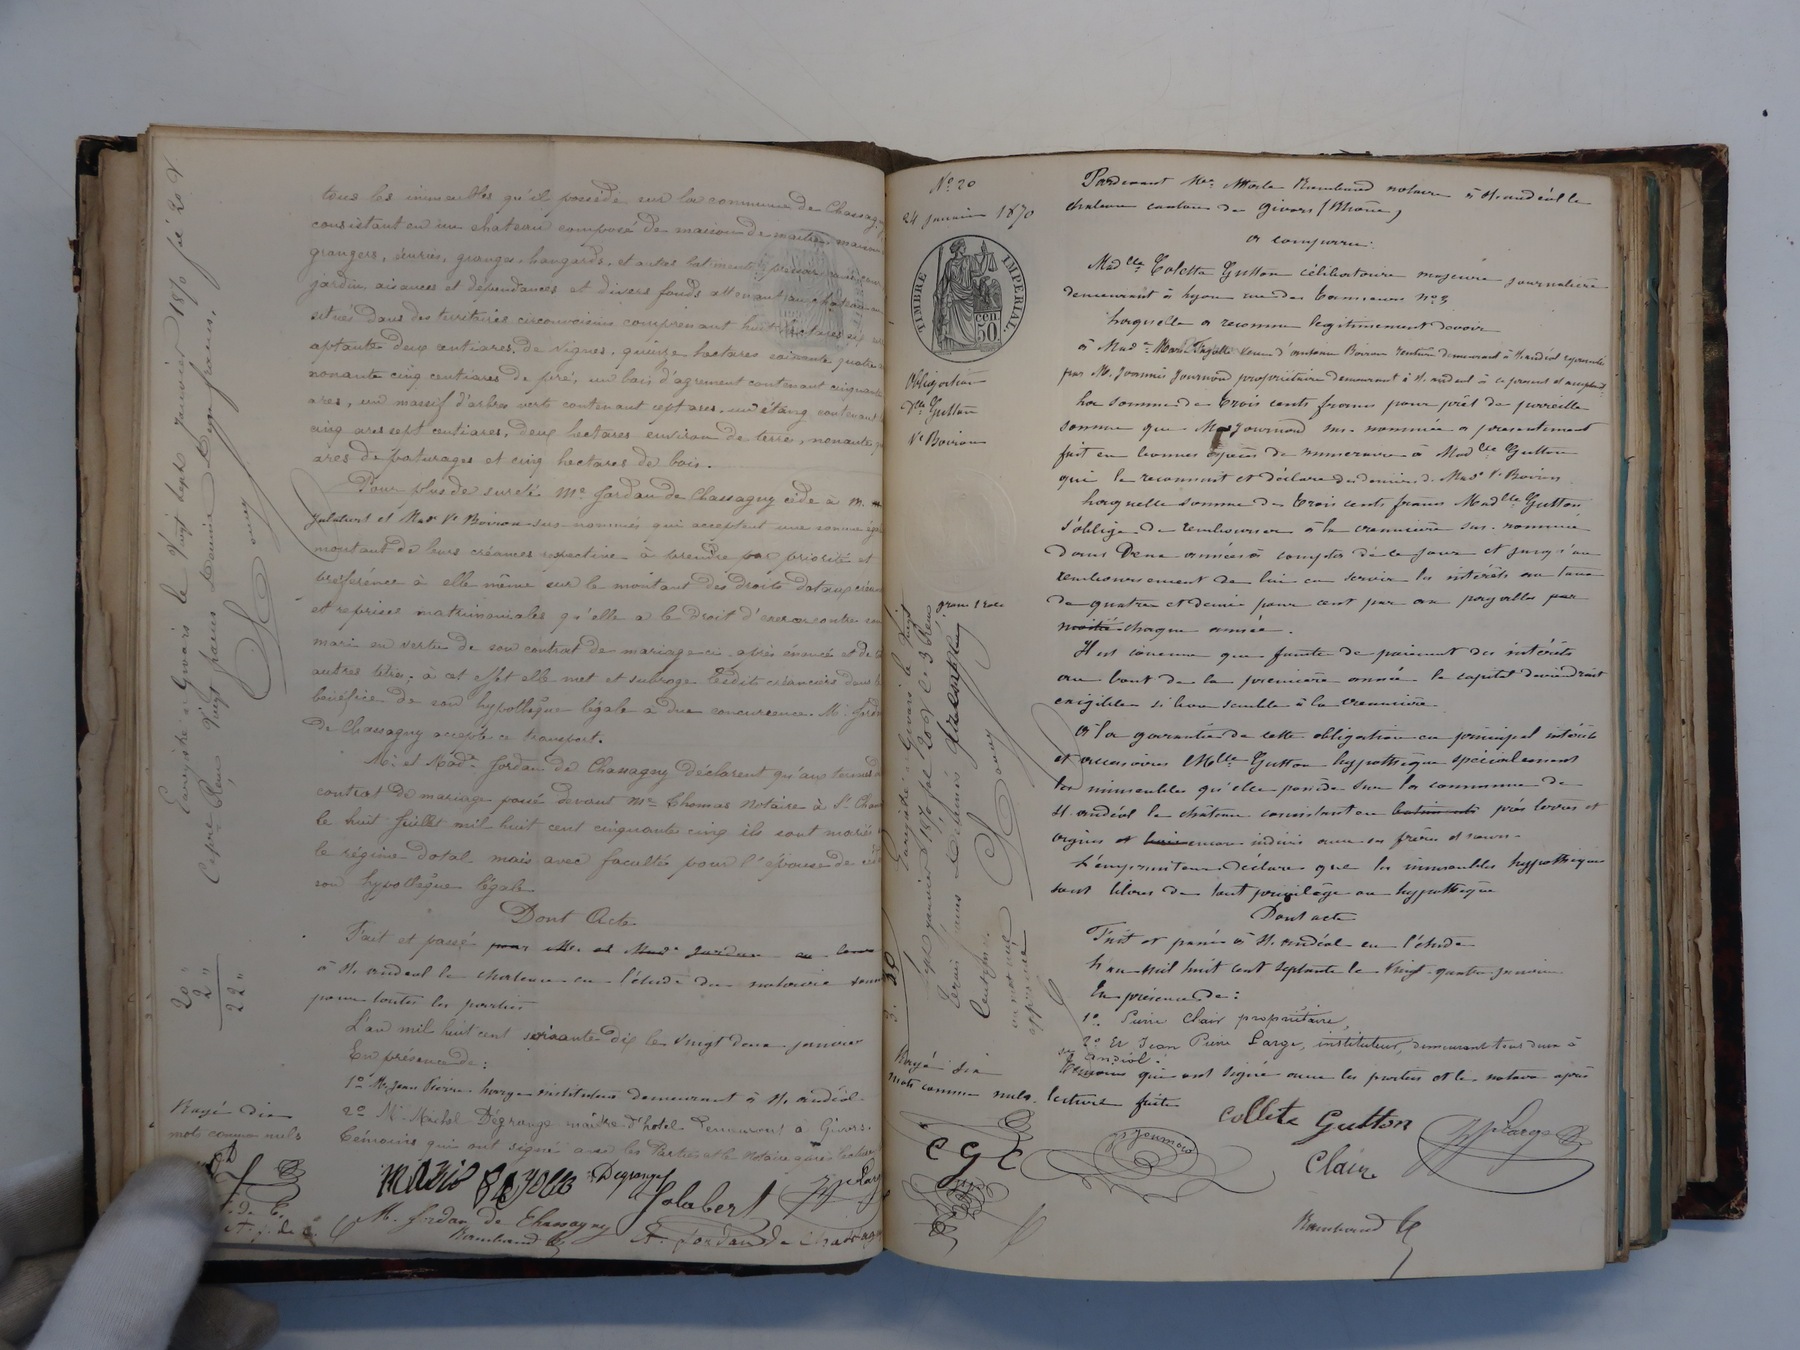 tous les immeubles qu'il possède sur la commune de Chassagny
consistant en un chateau composé de maison de maître, maison
grangers, écuries, granges, hangards, et autres batiments, pressoir
jardin, aisances et dépendances et divers fonds attenant au chateau
situés dans des territoires circonvoisins comprenant huit hectares
aptante deux centiares, de vignes, quinze hectares soixante quatre
nonante cinq centiares de pré, un bois d'agrement contenant cinquante
ares, un massif d'arbres verts contenant sept ares, un étang contenant
cinq ares sept centiares, deux hectares environ de terre, nonante
ares de paturages et cinq hectares de bois.
Pour plus de sureté Me Jordan de Chassagny cède à M.
Jalabert et Made Ve Boiron sus-nommés qui acceptent une somme
montant de leurs créances respective à prendre par priorité et
préférence à elle même sur le montant des droits dotaux
et reprises matrimoniales qu'elle a le droit d'exercer contre son
mari en vertu de son contrat de mariage ci-après énoncé et de
autres titres; à cet effet elle met et subroge lesdits créanciers dans
bénéfice de son hypothèque légale a due concurrence. M. Jordan
de Chassagny accepte ce transport.
M. et Made Jordan de Chassagny déclarent qu'aux termes
contrat de mariage passé devant Me Thomas notaire à St Cham
le huit Juillet mil huit cent cinquante cinq ils sont mariés
le régime dotal mais avec facultés pour l'épouse de
son hypothèque légale
Dont Acte
Fait et passé pour M. et Made Jordan au
à St andéol le chateau en l'étude du notaire
pour toutes les parties
L'an mil huit cent soixante dix le vingt deux janvier
En présence de:
1º M. Jean Pierre Large instituteur demeurant à St andéol
2º M. Michel Dégrange maître d'hotel demeurant à Givors.
témoins qui ont signé avec les Parties et le notaire après lecture
Rayé dix
mots comme nuls
Degrange
Jalabert
M. Jordan de Chassagny
Rambaud
A. Jordan de Chassagny
A. J. de C.
Enregistré à Givors le Vingt sept janvier 1870 fol 20
Reçu Vingt francs
20 "
2 "
22 "
Nº 20
24 janvier 1870
TIMBRE IMPERIAL
50 cen
Obligation
Dlle Gutton
Ve Boiron
grosse 1 role
Enregistré à Givors le Vingt
sept janvier 1870 fol 20
3.30
un mot nul
approuvé
Rayé six
mots comme nuls
C G C
Pardevant Me Rambaud notaire à St andéol le
chateau canton de Givors (Rhône)
a comparu:
Madlle Colette Gutton célibataire majeure journalière
demeurant à Lyon rue des Tanneurs no 5
Laquelle a reconnu légitimement devoir
à Made Marie veuve d'antoine Boiron rentière demeurant à St andéol
par M. Joannis Journoud propriétaire demeurant à St andéol à ce présent et acceptant
La somme de trois cents francs pour prêt de pareille
somme que M. Journoud sus-nommé a présentement
fait en bonnes espèces de numeraire à Madlle Gutton
qui le reconnait et déclare des deniers de Made Ve Boiron
Laquelle somme de trois cents francs Madlle Gutton
s'oblige de rembourser à la créancière sus-nommée
dans Deux années à compter de ce jour et jusqu'au
remboursement de lui en servir les intérêts au taux
de quatre et demie pour cent par an payables par
moitié chaque année.
Il est convenu que faute de paiement des intérêts
au bout de la première année le capital deviendrait
exigible si bon semble à la créancière
A la garantie de cette obligation en principal intérêts
et accessoires Mlle Gutton hypothèque spécialement
les immeubles qu'elle possède sur la commune de
St andéol le château consistant en batiments prés terres et
vignes et bois encore indivis avec ses frères et sœurs.
L'emprunteuse déclare que les immeubles hypothéqués
sont libres de tout privilège ou hypothèque
Dont acte
Fait et passé à St andéol en l'étude
L'an mil huit cent septante le Vingt-quatre janvier
En présence de:
1º Pierre Clair propriétaire,
2º Et Jean Pierre Large, instituteur, demeurant tous deux à
St andéol.
témoins qui ont signé avec les parties et le notaire après
lecture faite
Collete Gutton
JP Large
Journoud
Claire
Rambaud